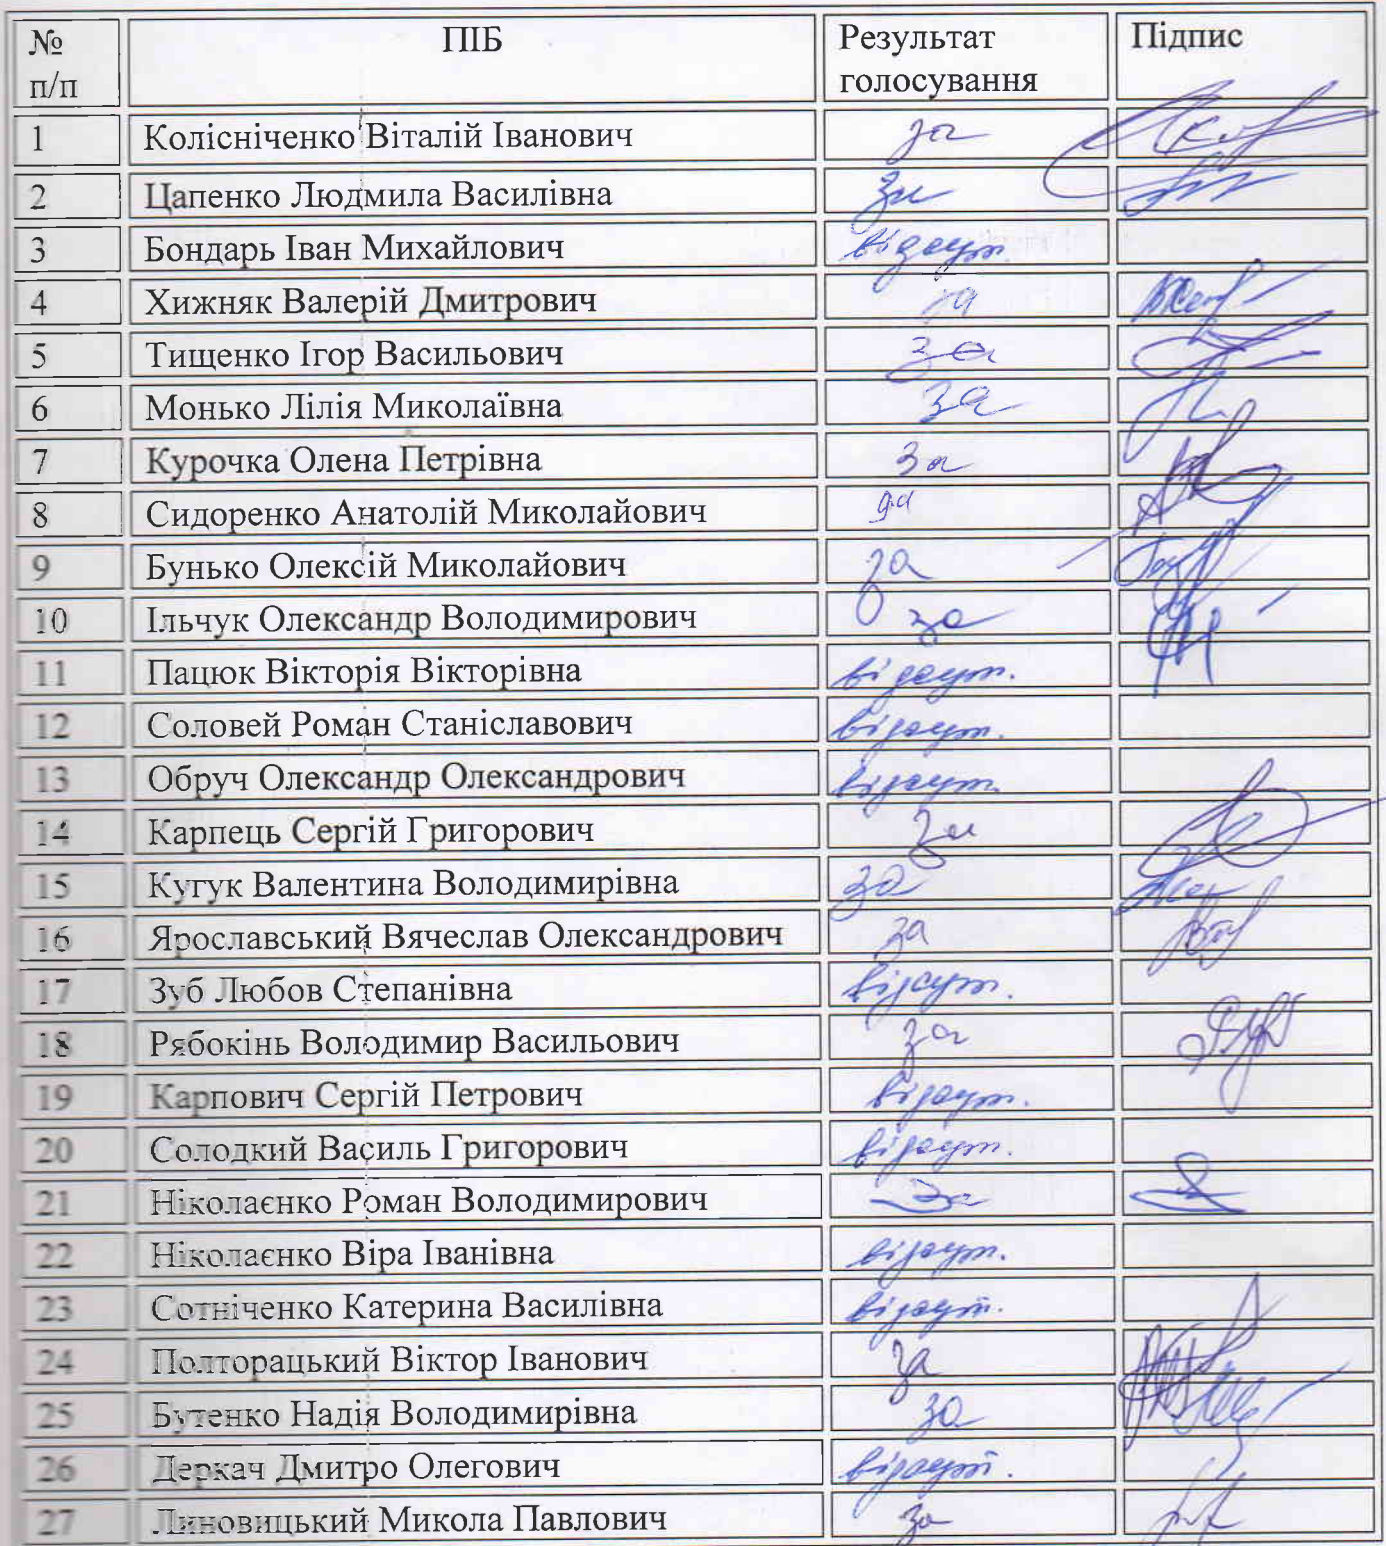 № п/п ПІБ Результат голосування Підпис
1 Колісніченко Віталій Іванович за
2 Цапенко Людмила Василівна за
3 Бондарь Іван Михайлович відсут.
4 Хижняк Валерій Дмитрович за
5 Тищенко Ігор Васильович за
6 Монько Лілія Миколаївна за
7 Курочка Олена Петрівна за
8 Сидоренко Анатолій Миколайович за
9 Бунько Олексій Миколайович за
10 Ільчук Олександр Володимирович за
11 Пацюк Вікторія Вікторівна відсут.
12 Соловей Роман Станіславович відсут.
13 Обруч Олександр Олександрович відсут.
14 Карпець Сергій Григорович за
15 Кугук Валентина Володимирівна за
16 Ярославський Вячеслав Олександрович за
17 Зуб Любов Степанівна відсут.
18 Рябокінь Володимир Васильович за
19 Карпович Сергій Петрович відсут.
20 Солодкий Василь Григорович відсут.
21 Ніколаєнко Роман Володимирович За
22 Ніколаєнко Віра Іванівна відсут.
23 Сотніченко Катерина Василівна відсут.
24 Полторацький Віктор Іванович за
25 Бутенко Надія Володимирівна за
26 Деркач Дмитро Олегович відсут.
27 Линовицький Микола Павлович за